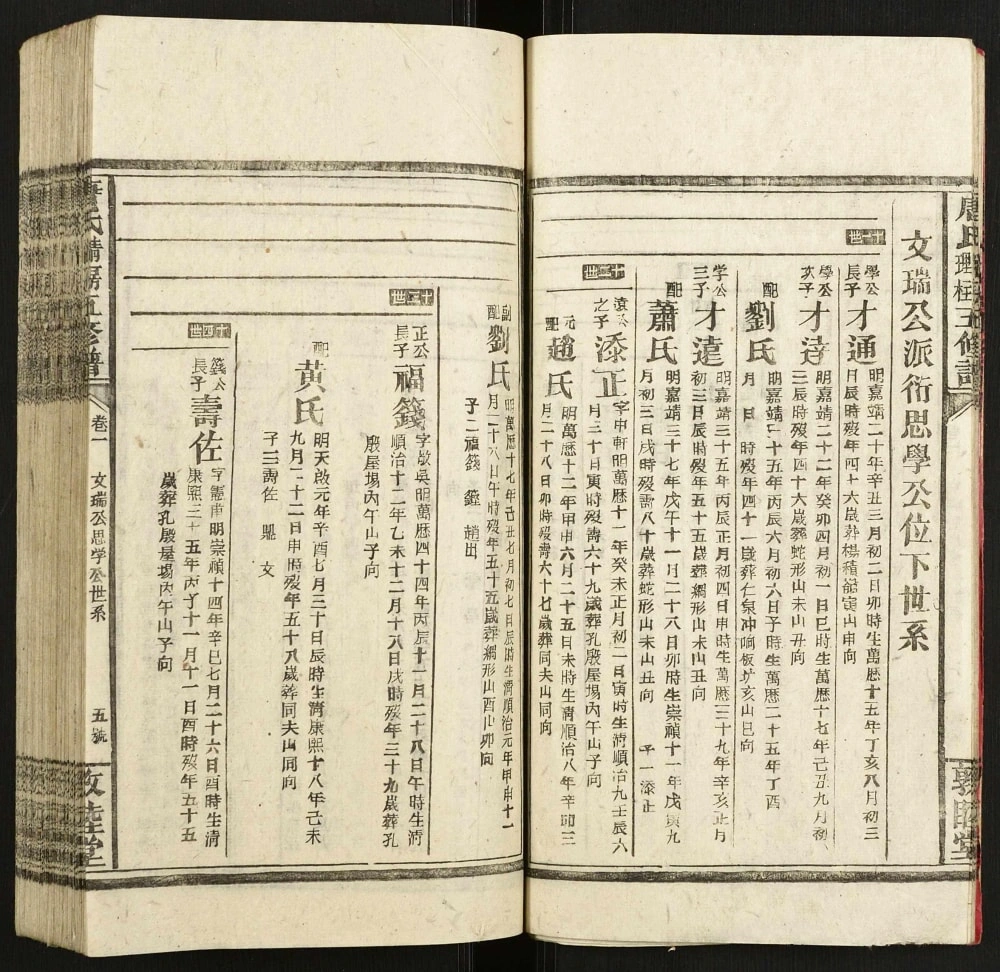 唐氏理柱五修譜
敦睦堂
文瑞公派衍思學公位下世系
十一世
學公長子
才通
明嘉靖二十年辛丑三月初二日卯時生萬歷十五年丁亥八月初三
日辰時歿年四十六歲葬楊積龍寅山申向
學公次子
才達
明嘉靖二十二年癸卯四月初一日巳時生萬歷十七年己丑九月初
三辰時歿年四十六歲葬蛇形山未山丑向
配
劉氏
明嘉靖三十五年丙辰六月初六日子時生萬歷二十五年丁酉
月 日 時歿年四十一歲葬仁泉冲响板圹亥山巳向
学公三子
才遠
明嘉靖三十五年丙辰正月初四日申時生萬歷三十九年辛亥正月
初三日辰時歿年五十五歲葬網形山未山丑向
配
蕭氏
明嘉靖三十七年戊午十一月二十八日卯時生崇禎十一年戊寅九
月初三日戌時歿壽八十歲葬蛇形山未山丑向 子一添正
十二世
遠公之子
添正
字申軒明萬歷十一年癸未正月初二日寅時生清順治九壬辰六
月三十日寅時歿壽六十九歲葬孔殿屋場丙午山子向
元配
趙氏
明萬歷十二年甲申六月二十五日未時生清順治八年辛卯三
月二十八日卯時歿壽六十七歲葬同夫山同向
副配
劉氏
明萬歷十七年己丑七月初七日辰時生清順治元年甲申十一
月二十六日午時歿年五十五歲葬網形山酉山卯向
子二福籛 鏗 趙出
十三世
正公長子
福籛
字啟吳明萬歷四十四年丙辰十一月二十八日午時生清
順治十二年乙未十二月十八日戌時歿年三十九歲葬孔
殿屋場內午山子向
配
黃氏
明天啟元年辛酉七月三十日辰時生清康熙十八年己未
九月二十二日申時歿年五十八歲葬同夫山同向
子三壽佐 文
十四世
籛公長子
壽佐
明崇禎十四年辛巳七月二十六日酉時生清
康熙三十五年丙子十一月十一日酉時歿年五十五
歲葬孔殿屋場丙午山子向
卷一
文瑞公思学公世系
五號
敦睦堂